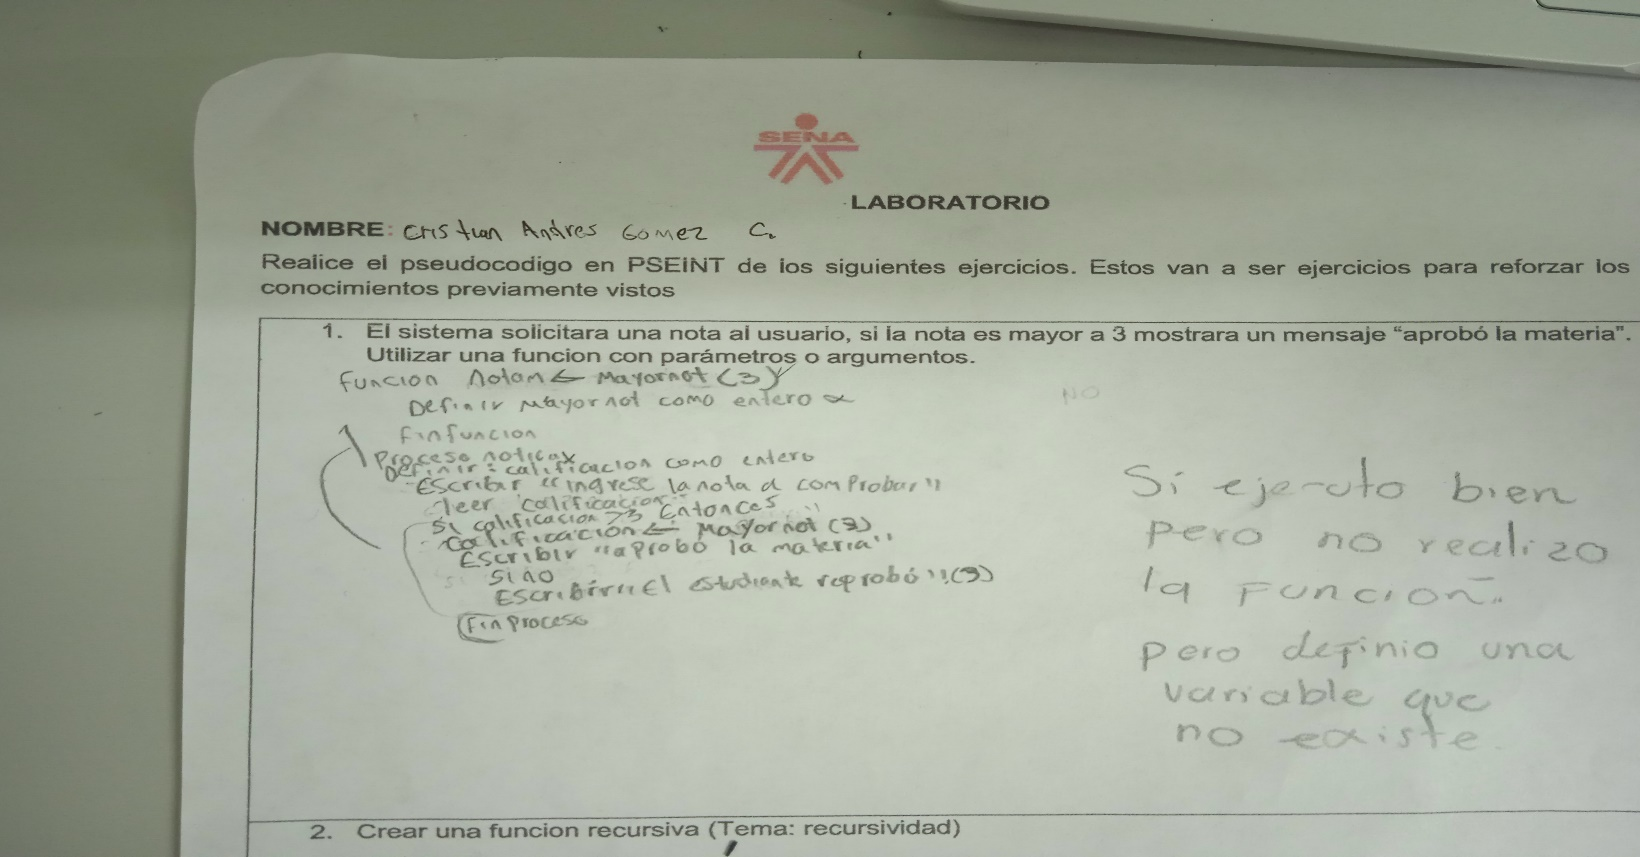 SENA
LABORATORIO
NOMBRE: Cristian Andres Gomez C.
Realice el pseudocodigo en PSEINT de los siguientes ejercicios. Estos van a ser ejercicios para reforzar los
conocimientos previamente vistos
1. El sistema solicitara una nota al usuario, si la nota es mayor a 3 mostrara un mensaje “aprobó la materia”.
Utilizar una funcion con parámetros o argumentos.
Funcion ← Mayornot (3)
Definir Mayornot como entero
NO
finfuncion
Proceso
Definir: calificacion como entero
Escribir "ingrese la nota a comprobar"
leer calificacion
Si calificacion >3 Entonces
Calificación ← Mayornot (3)
Escribir "aprobó la materia"
Sino
Escribir "El estudiante reprobó" (3)
Fin proceso
Si ejecuto bien
pero no realizo
la Funcion.
pero definio una
variable que
no existe.
2. Crear una funcion recursiva (Tema: recursividad)